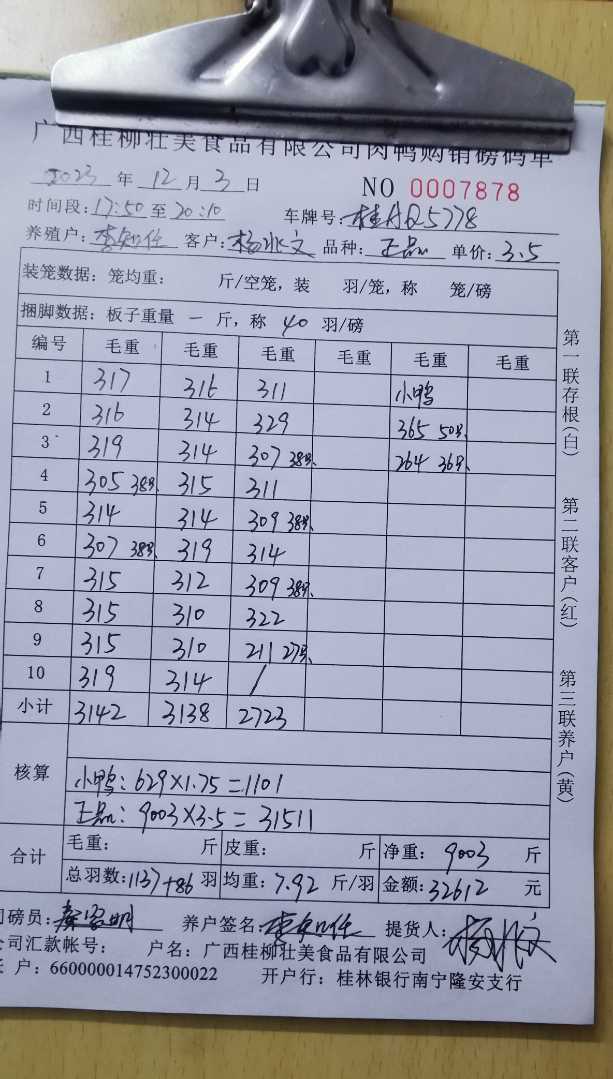 广西桂柳壮美食品有限公司肉鸭购销磅码单
2023 年 12 月 3 日 NO 0007878
时间段: 17:50 至 20:10 车牌号: 桂AQ5778
养殖户: 李知任 客户: 杨兆文 品种: 正品 单价: 3.5
装笼数据: 笼均重: 斤/空笼, 装 羽/笼, 称 笼/磅
捆脚数据: 板子重量 一 斤, 称 40 羽/磅
编号 毛重 毛重 毛重 毛重 毛重 毛重
1 317 316 311 小鸭
2 316 314 329 365 50只
3 319 314 307 38只 264 36只
4 305 38只 315 311
5 314 314 309 38只
6 307 38只 319 314
7 315 312 309 38只
8 315 310 322
9 315 310 211 27只
10 319 314 /
小计 3142 3138 2723
核算
小鸭: 629×1.75=1101
正品: 9003×3.5=31511
合计 毛重: 斤 皮重: 斤 净重: 9003 斤
总羽数: 1137+86 羽 均重: 7.92 斤/羽 金额: 32612 元
司磅员: 养户签名: 李知任 提货人: 杨兆文
公司汇款帐号: 户名: 广西桂柳壮美食品有限公司
户: 660000014752300022 开户行: 桂林银行南宁隆安支行
第一联存根(白)
第二联客户(红)
第三联养户(黄)